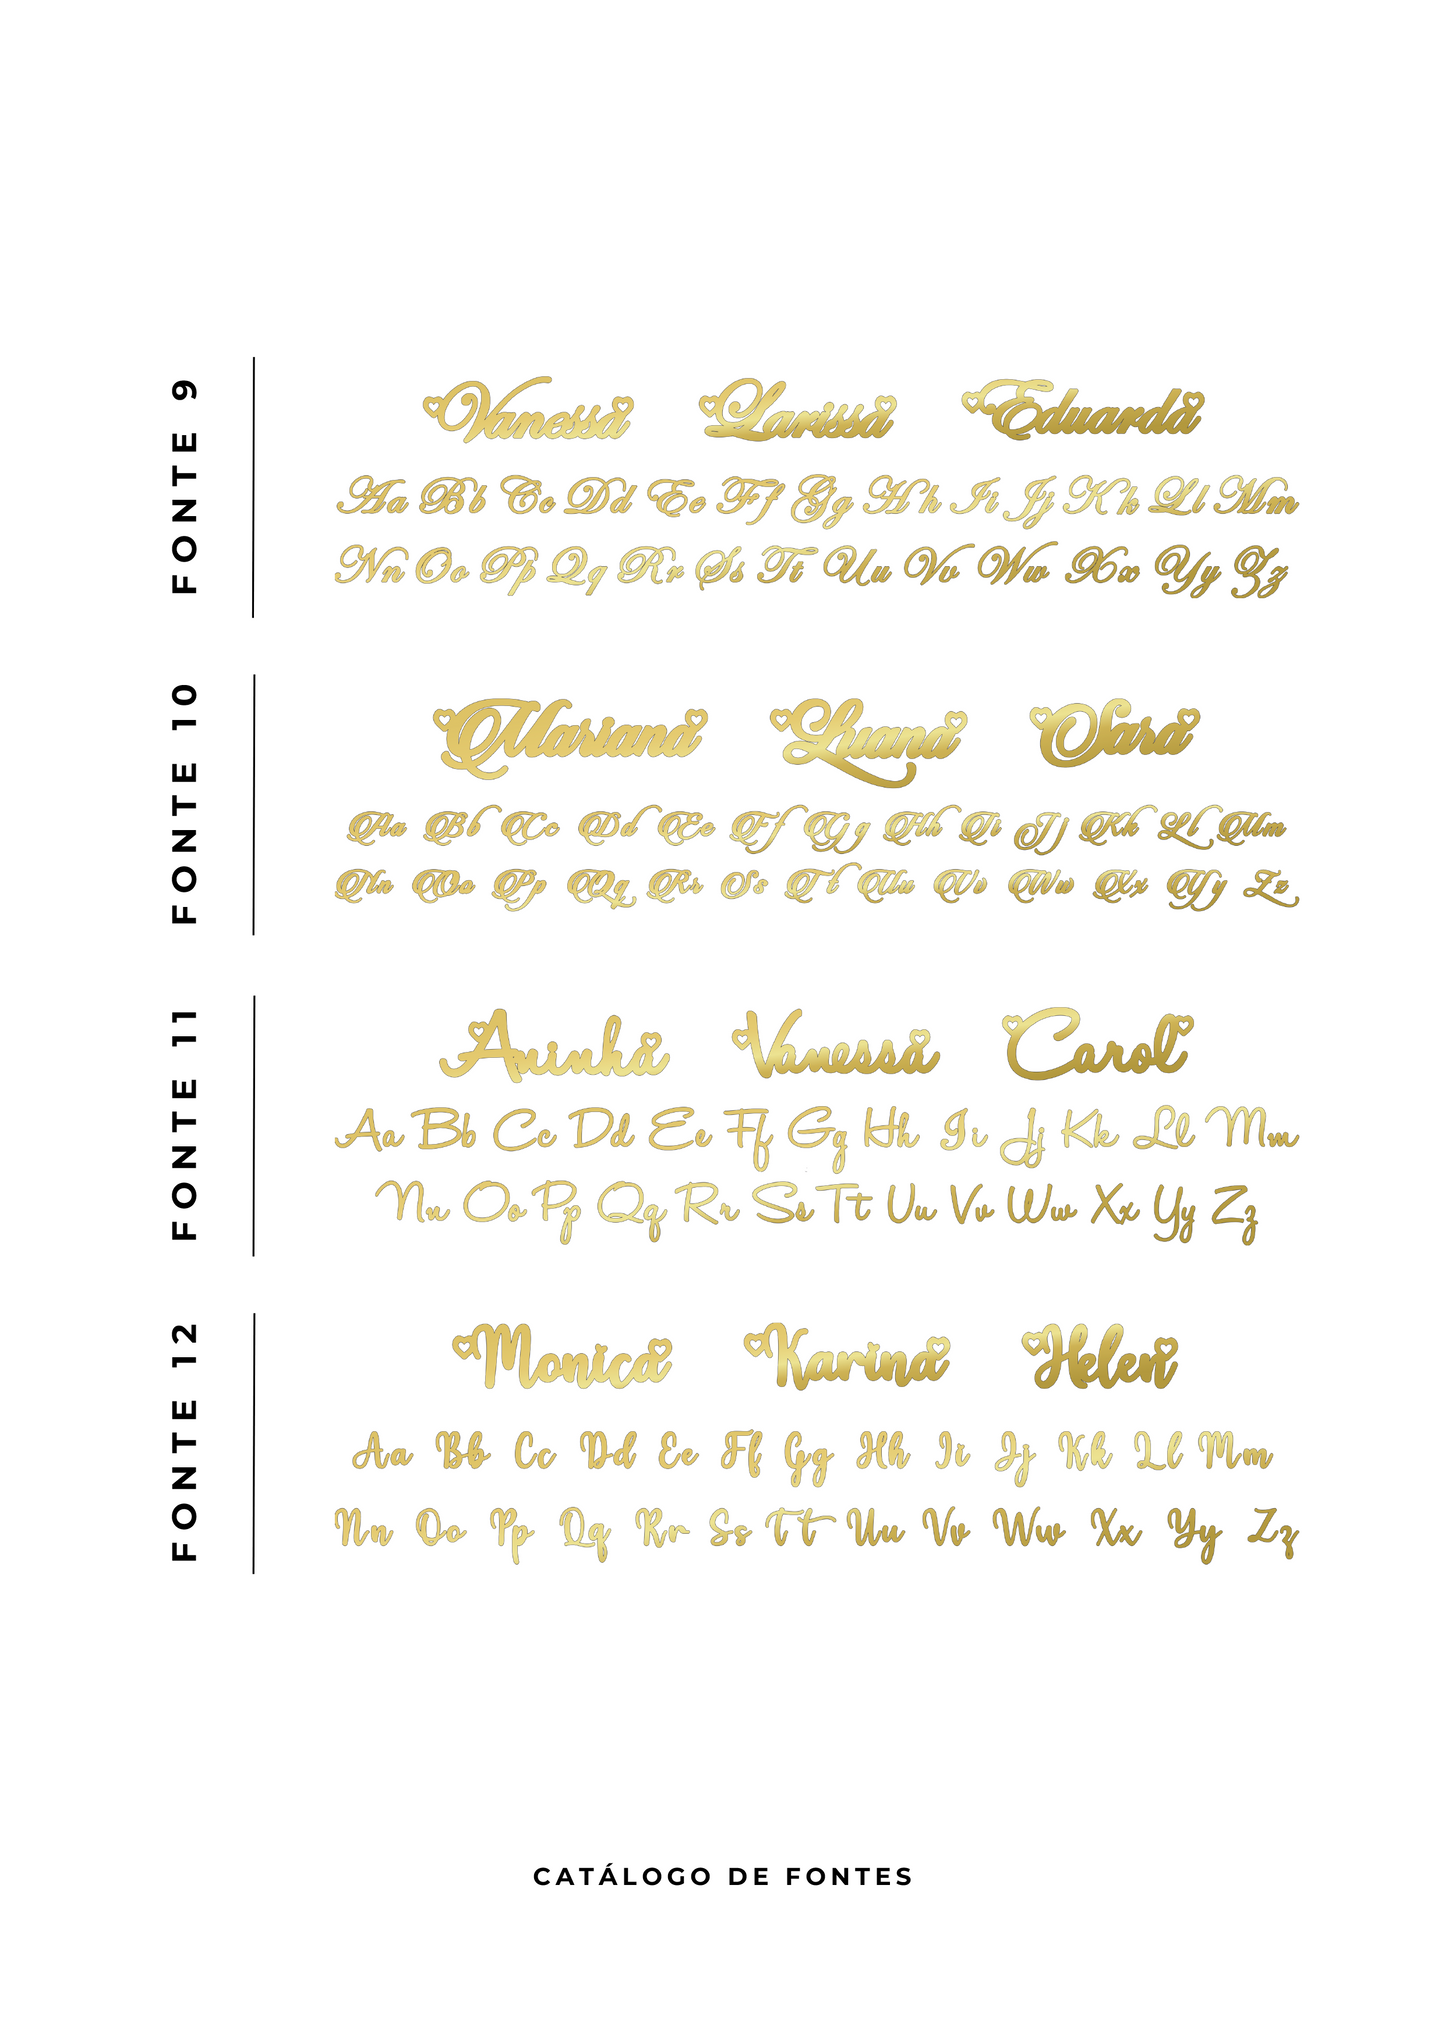 FONTE 9
Vanessa Larissa Eduarda
Aa Bb Cc Dd Ee Ff Gg Hh Ii Jj Kk Ll Mm
Nn Oo Pp Qq Rr Ss Tt Uu Vv Ww Xx Yy Zz
FONTE 10
Mariana Luana Sara
Aa Bb Cc Dd Ee Ff Gg Hh Ii Jj Kk Ll Mm
Nn Oo Pp Qq Rr Ss Tt Uu Vv Ww Xx Yy Zz
FONTE 11
Aninha Vanessa Carol
Aa Bb Cc Dd Ee Ff Gg Hh Ii Jj Kk Ll Mm
Nn Oo Pp Qq Rr Ss Tt Uu Vv Ww Xx Yy Zz
FONTE 12
Monica Karina Helen
Aa Bb Cc Dd Ee Ff Gg Hh Ii Jj Kk Ll Mm
Nn Oo Pp Qq Rr Ss Tt Uu Vv Ww Xx Yy Zz
CATÁLOGO DE FONTES